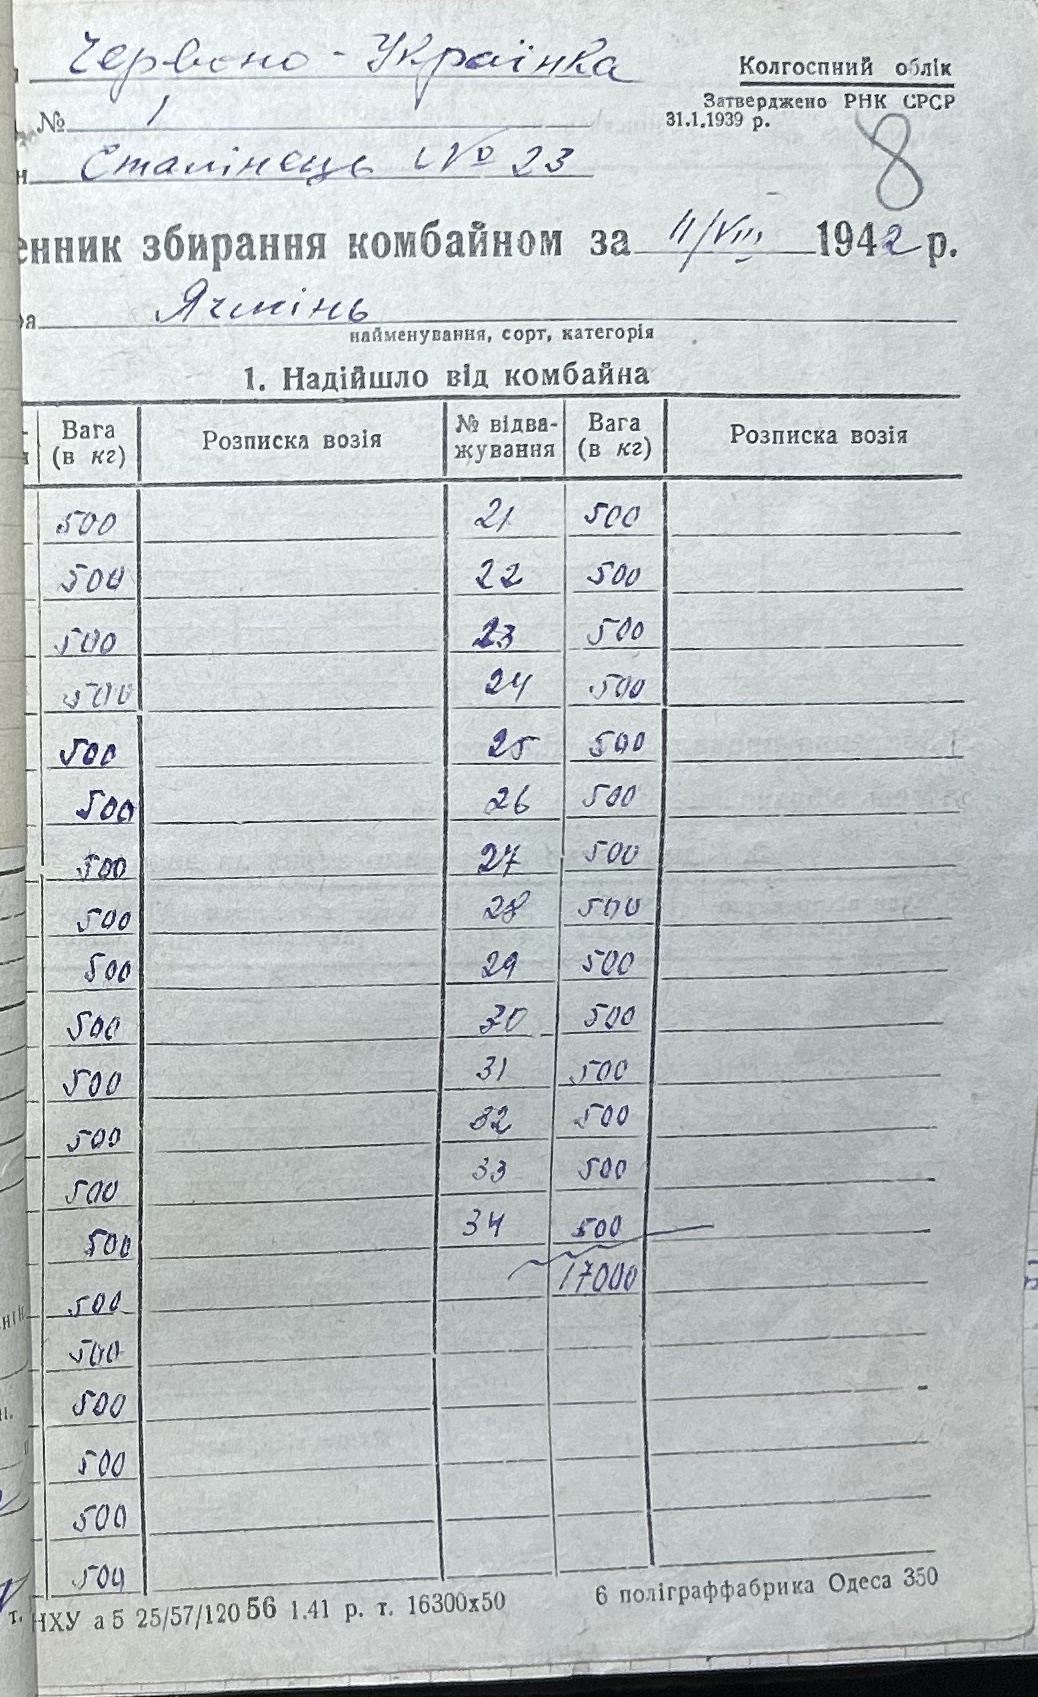 Червоно-Українка
Колгоспний облік
Затверджено РНК СРСР
31.1.1939 р.
№ 1
8
Сталінець № 23
енник збирання комбайном за 11/VIII 1942 р.
а Ячмінь
найменування, сорт, категорія
1. Надійшло від комбайна
Вага (в кг) Розписка возія № відва-жування Вага (в кг) Розписка возія
500 21 500
500 22 500
500 23 500
500 24 500
500 25 500
500 26 500
500 27 500
500 28 500
500 29 500
500 30 500
500 31 500
500 32 500
500 33 500
500 34 500
500 17000
500
500
500
500
500
НХУ а 5 25/57/120 56 1.41 р. т. 16300х50 6 поліграффабрика Одеса 350